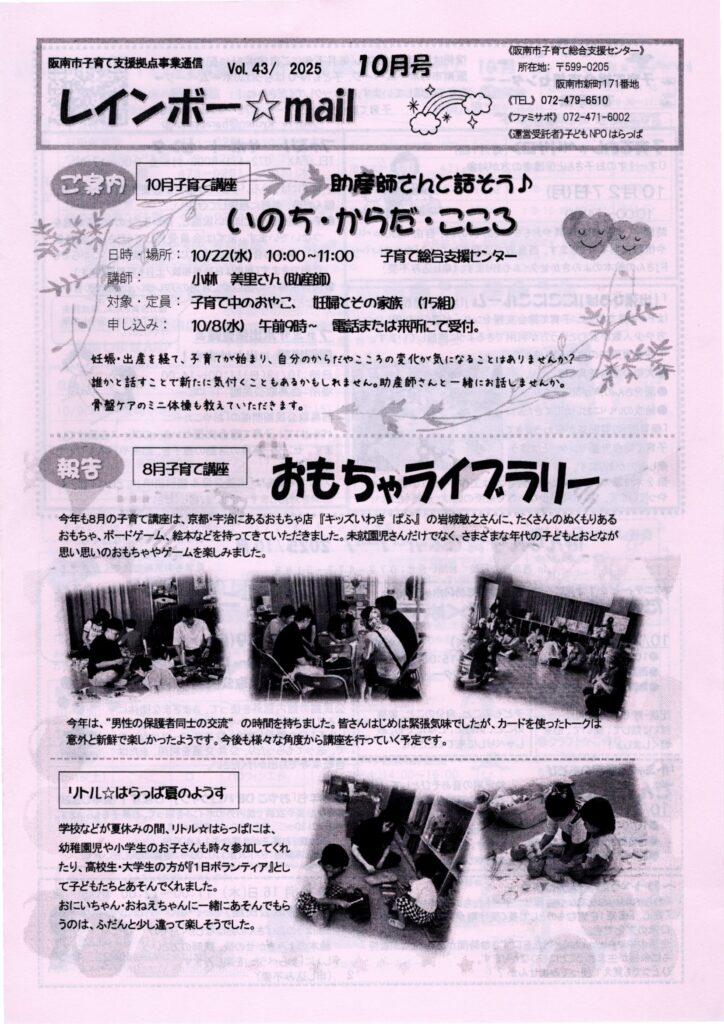 阪南市子育て支援拠点事業通信 Vol. 43/ 2025 10月号
レインボー☆mail
《阪南市子育て総合支援センター》
所在地: 〒599-0205
阪南市新町171番地
《TEL》 072-479-6510
《ファミサポ》 072-471-6002
《運営受託者》子どもNPOはらっぱ
ご案内 10月子育て講座 助産師さんと話そう♪
いのち・からだ・こころ
日時・場所: 10/22(水) 10:00~11:00 子育て総合支援センター
講師: 小林 美里さん(助産師)
対象・定員: 子育て中のおやこ、 妊婦とその家族 (15組)
申し込み: 10/8(水) 午前9時~ 電話または来所にて受付。
妊娠・出産を経て、子育てが始まり、自分のからだやこころの変化が気になることはありませんか?
誰かと話すことで新たに気付くこともあるかもしれません。助産師さんと一緒にお話しませんか。
骨盤ケアのミニ体操も教えていただきます。
報告 8月子育て講座 おもちゃライブラリー
今年も8月の子育て講座は、京都・宇治にあるおもちゃ店 『キッズいわき ぱふ』 の岩城敏之さんに、たくさんのぬくもりある
おもちゃ、ボードゲーム、絵本などを持ってきていただきました。未就園児さんだけでなく、さまざまな年代の子どもとおとなが
思い思いのおもちゃやゲームを楽しみました。
今年は、“男性の保護者同士の交流” の時間を持ちました。皆さんはじめは緊張気味でしたが、カードを使ったトークは
意外と新鮮で楽しかったようです。今後も様々な角度から講座を行っていく予定です。
リトル☆はらっぱ夏のようす
学校などが夏休みの間、リトル☆はらっぱには、
幼稚園児や小学生のお子さんも時々参加してくれ
たり、高校生・大学生の方が『1日ボランティア』とし
て子どもたちとあそんでくれました。
おにいちゃん・おねえちゃんに一緒にあそんでもら
うのは、ふだんと少し違って楽しそうでした。